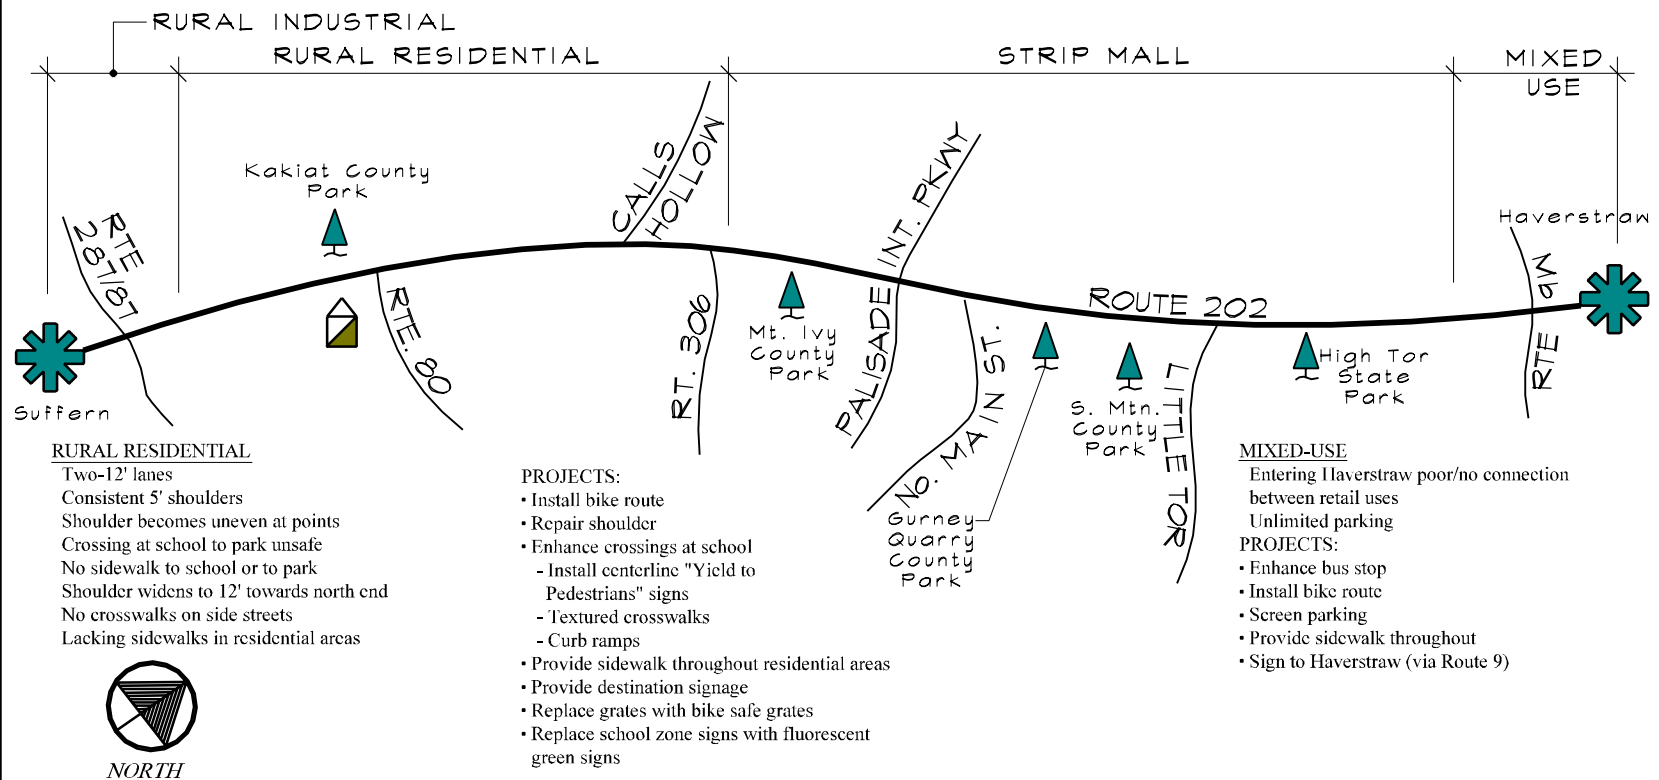 RURAL INDUSTRIAL
RURAL RESIDENTIAL
STRIP MALL
MIXED
USE
CALLS
HOLLOW
PALISADE INT. PKWY
Kakiat County
Park
RTE
287/87
Haverstraw
RTE 9W
ROUTE 202
RTE. 80
RT. 306
Mt. Ivy
County
Park
NO. MAIN ST.
High Tor
State
Park
S. Mtn.
County
Park
LITTLE TOR
Suffern
Gurney
Quarry
County
Park
RURAL RESIDENTIAL
Two-12' lanes
Consistent 5' shoulders
Shoulder becomes uneven at points
Crossing at school to park unsafe
No sidewalk to school or to park
Shoulder widens to 12' towards north end
No crosswalks on side streets
Lacking sidewalks in residential areas
PROJECTS:
• Install bike route
• Repair shoulder
• Enhance crossings at school
- Install centerline "Yield to
Pedestrians" signs
- Textured crosswalks
- Curb ramps
• Provide sidewalk throughout residential areas
• Provide destination signage
• Replace grates with bike safe grates
• Replace school zone signs with fluorescent
green signs
MIXED-USE
Entering Haverstraw poor/no connection
between retail uses
Unlimited parking
PROJECTS:
• Enhance bus stop
• Install bike route
• Screen parking
• Provide sidewalk throughout
• Sign to Haverstraw (via Route 9)
NORTH